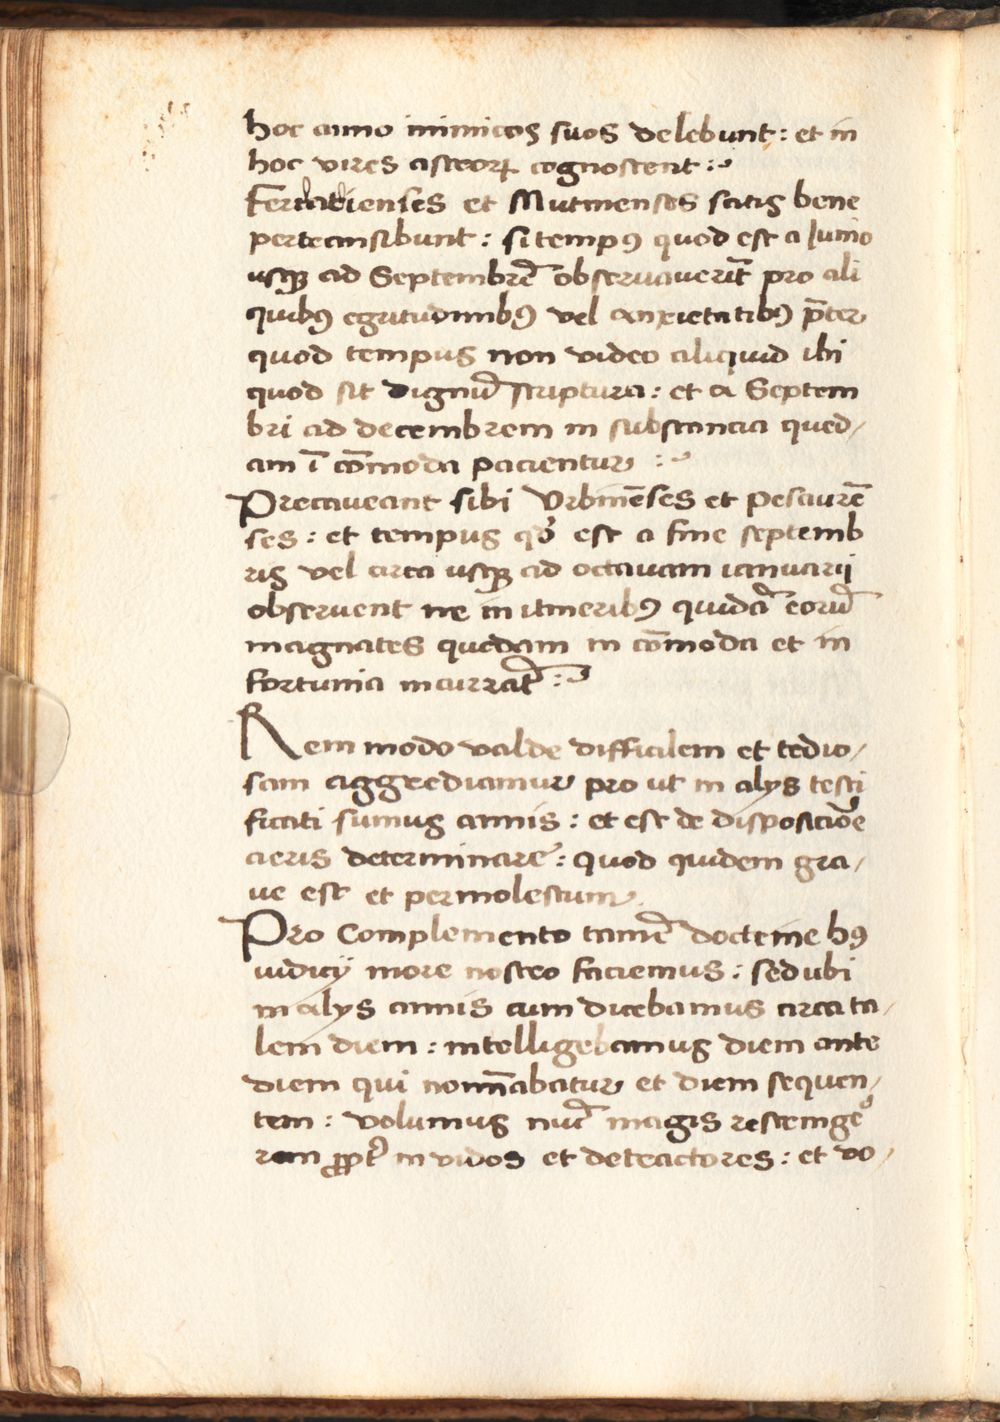 hoc anno inimicos suos delebunt : et in
hoc vires astrorꝝ cognoscent :~
Ferrarienses et Mutinenses satis bene
pertransibunt : si tempꝰ quod est a Junio
usqꝫ ad Septembrē observaverīt pro ali
quibꝰ egritudinibꝰ vel anxietatibꝰ p̄ter
quod tempus non video aliquid ibi
quod sit dignū scriptura : et a Septem
bri ad decembrem in substancia qued/
am ī cōmoda pacientur :~
Precaveant sibi Vrbinēses et pesaurē
ses : et tempus qđ est a fine septemb
ris vel circa usqꝫ ad octavam ianuarij
observent ne in itineribꝰ quidā eorū
magnates quedam in cōmoda et in
fortunia incurrāt :~
Rem modo valde difficilem et tedio/
sam aggrediamur pro ut in alys testi
ficati sumus annis : et est de disposiciōe
aeris determinare : quod quidem gra/
ve est et permolestum
Pro Complemento tamē doctrine hꝰ
iudicij more nostro faciemus : sed ubi
in alys annis cum dicebamus circa ta/
lem diem : intelligebamus diem ante
diem qui nom̄abatur et diem sequen/
tem : volumus nūc magis restringe
rem ꝓpt̄ invidos et detractores : et vo/